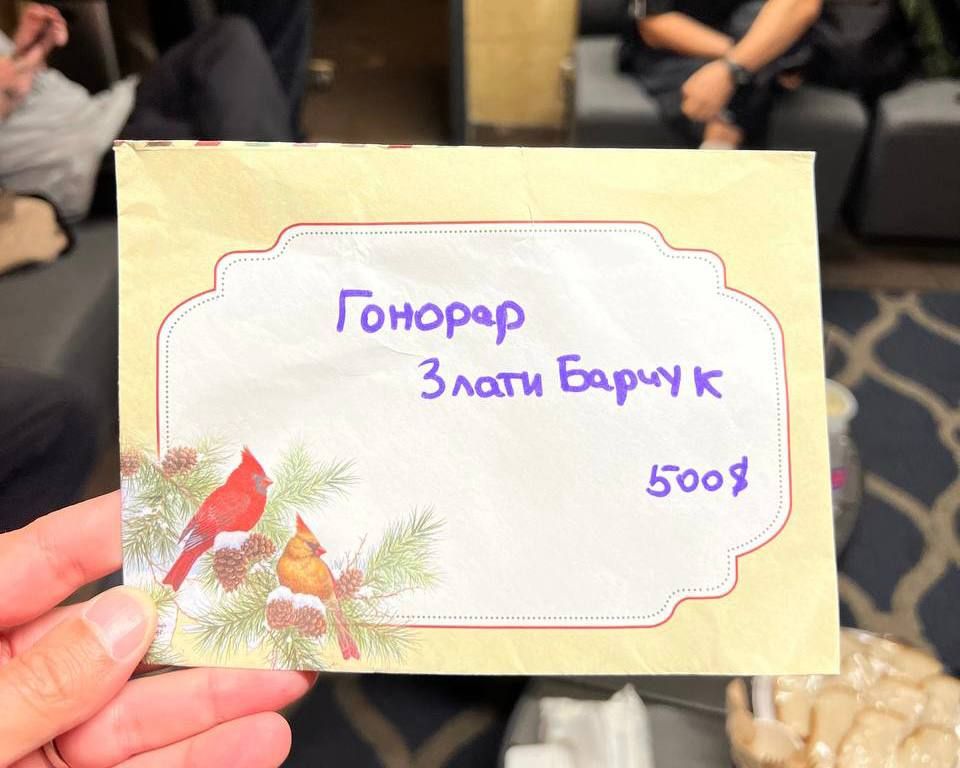 Гонорар
Злати Барчук
500$